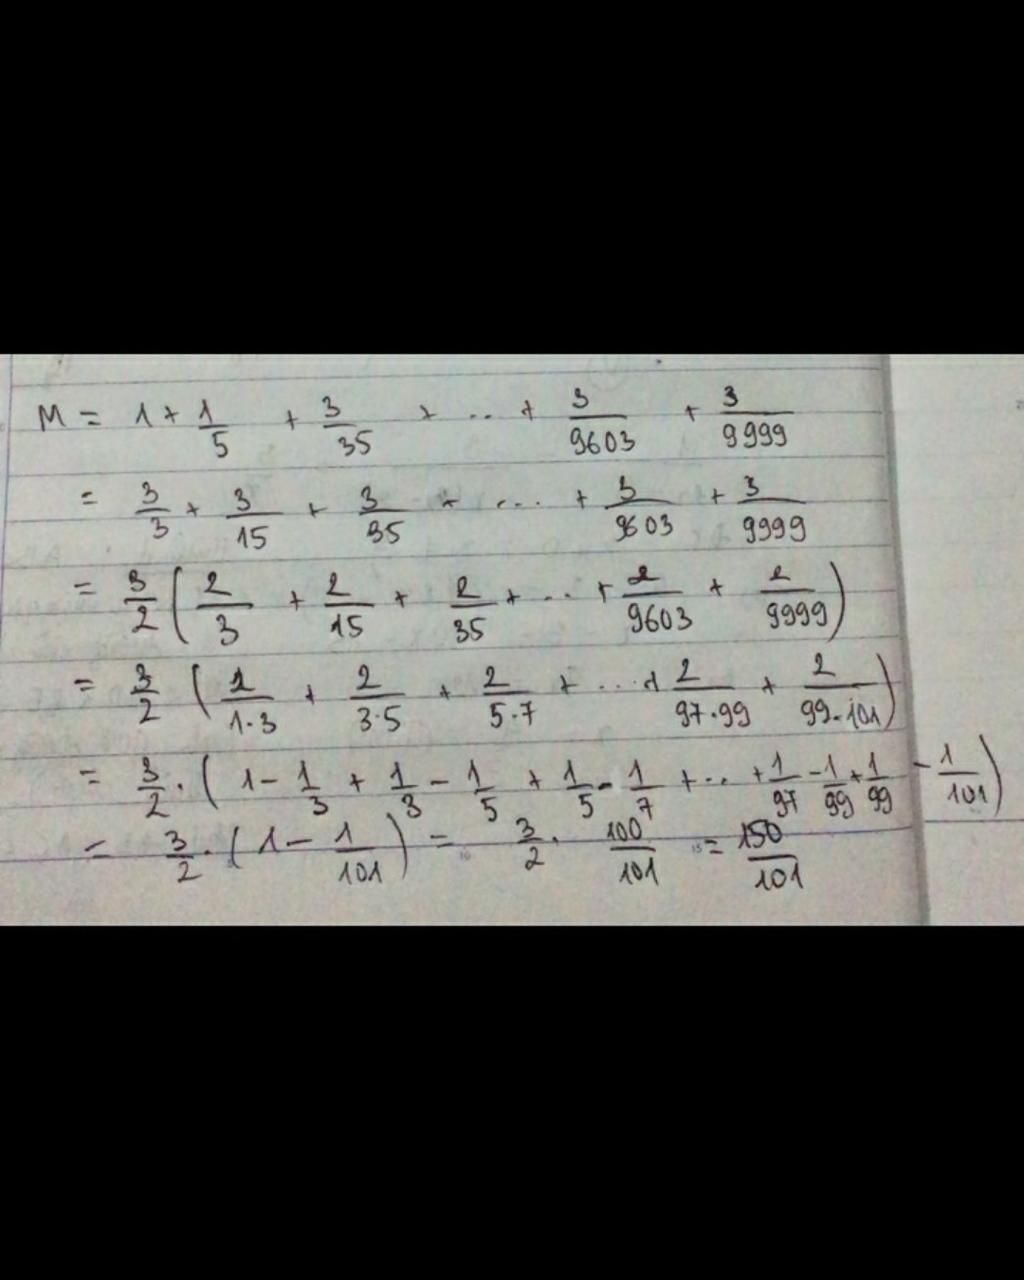 M = 1 + 1/5 + 3/35 + ... + 3/9603 + 3/9999
= 3/3 + 3/15 + 3/35 + .... + 3/9603 + 3/9999
= 3/2 ( 2/3 + 2/15 + 2/35 + ... + 2/9603 + 2/9999 )
= 3/2 ( 2/1·3 + 2/3·5 + 2/5·7 + ... + 2/97·99 + 2/99·101 )
= 3/2 · ( 1 - 1/3 + 1/3 - 1/5 + 1/5 - 1/7 + ... + 1/97 - 1/99 + 1/99 - 1/101 )
= 3/2 · ( 1 - 1/101 ) = 3/2 · 100/101 = 150/101